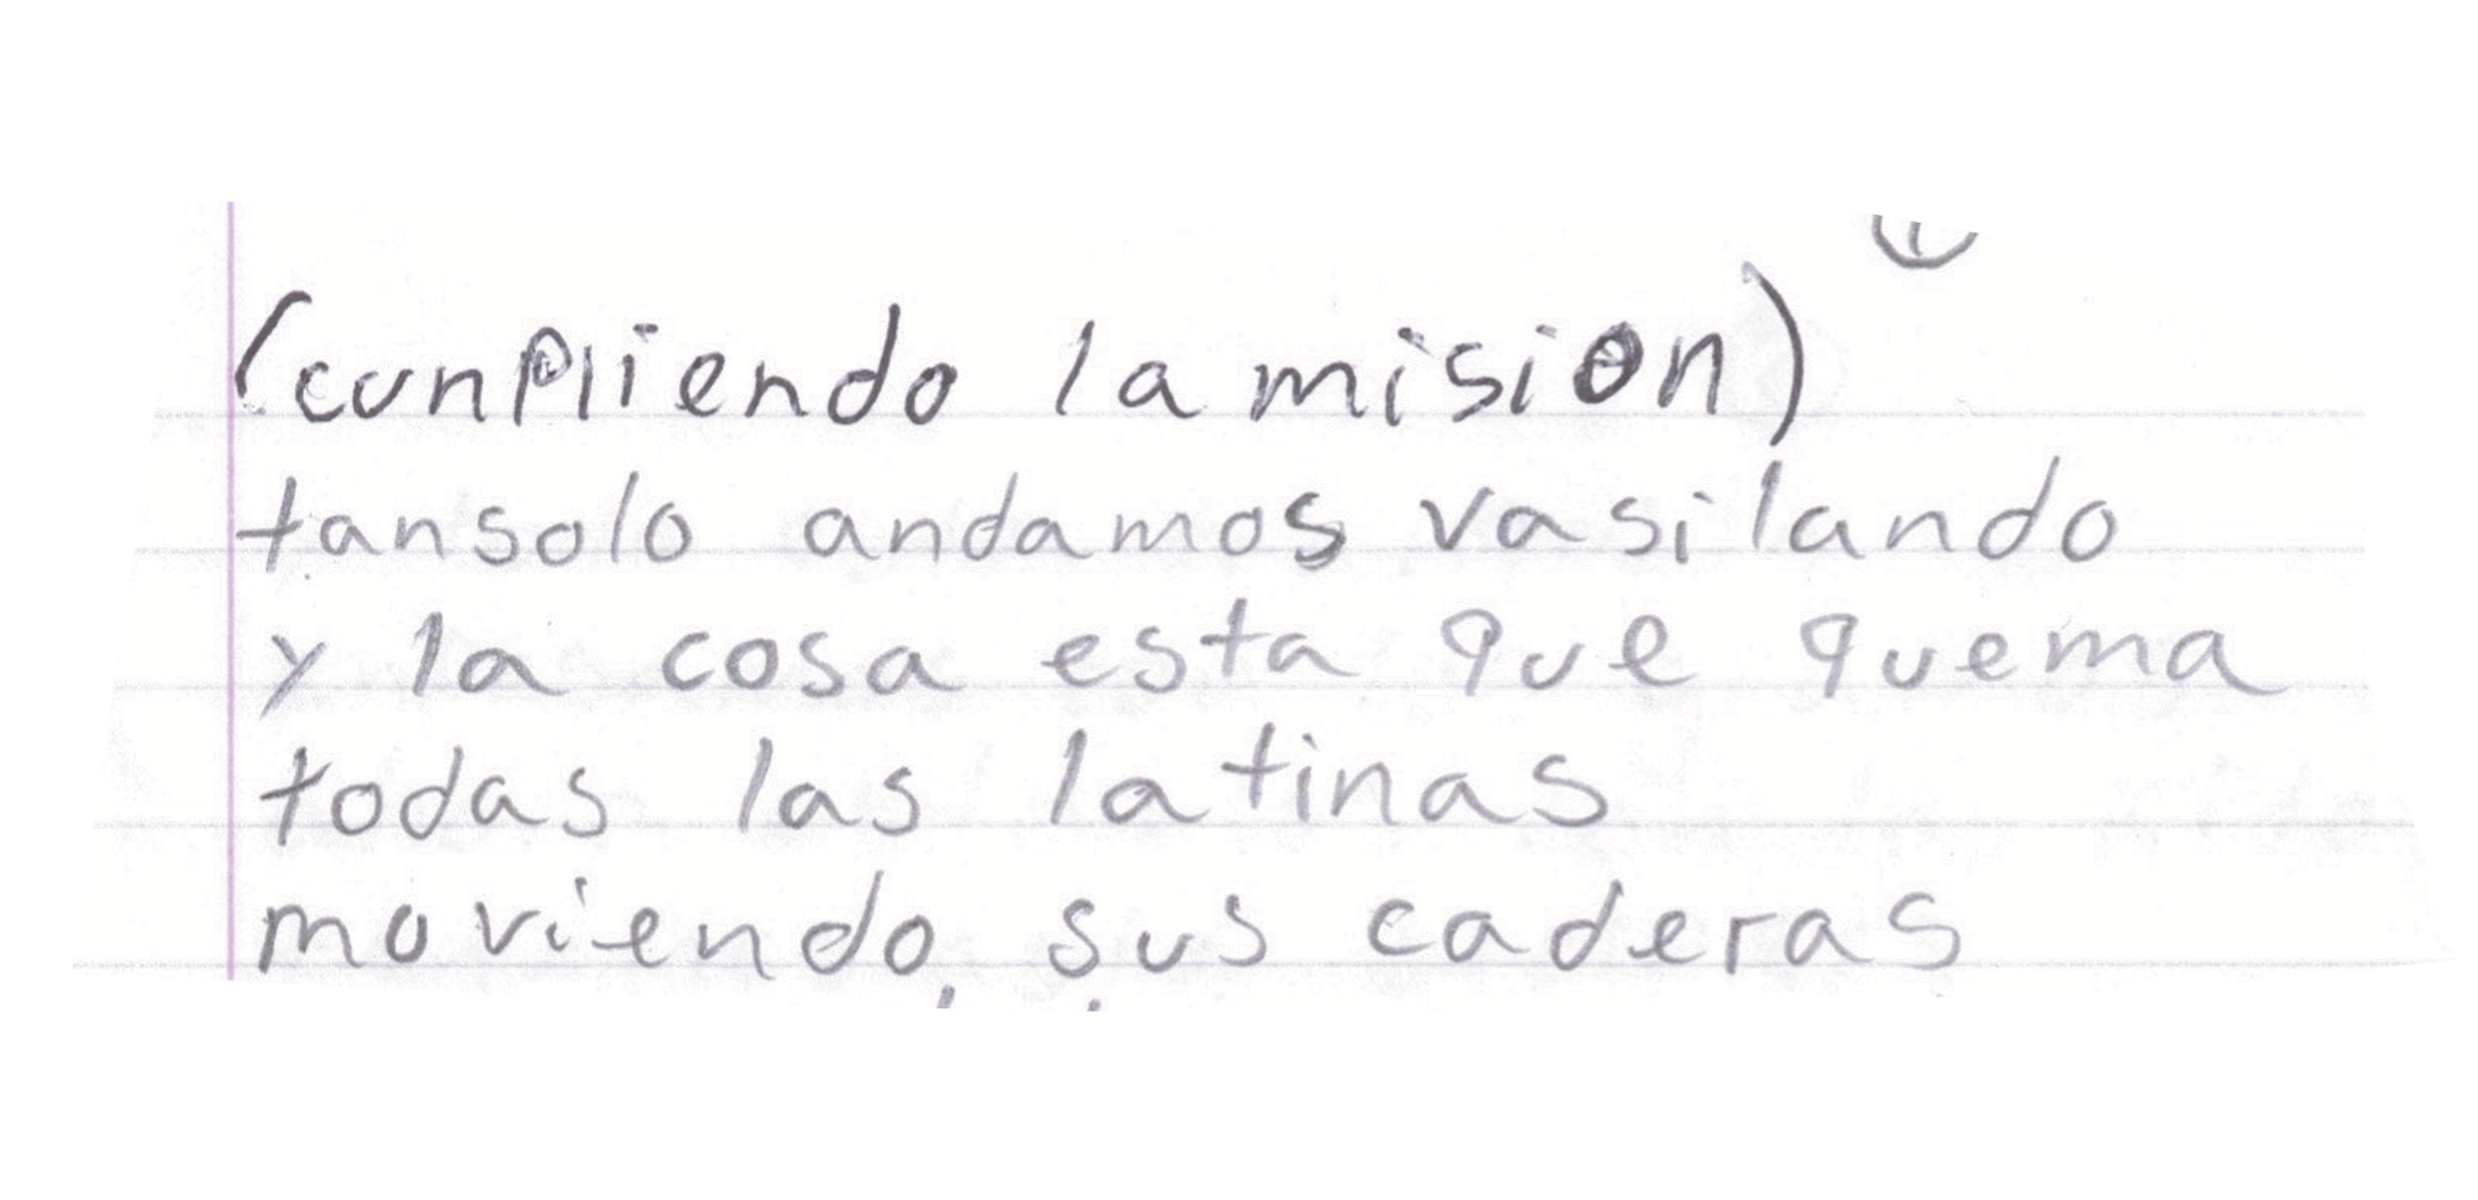 (cunpliendo la mision)
tansolo andamos vasilando
y la cosa esta que quema
todas las latinas
moviendo sus caderas